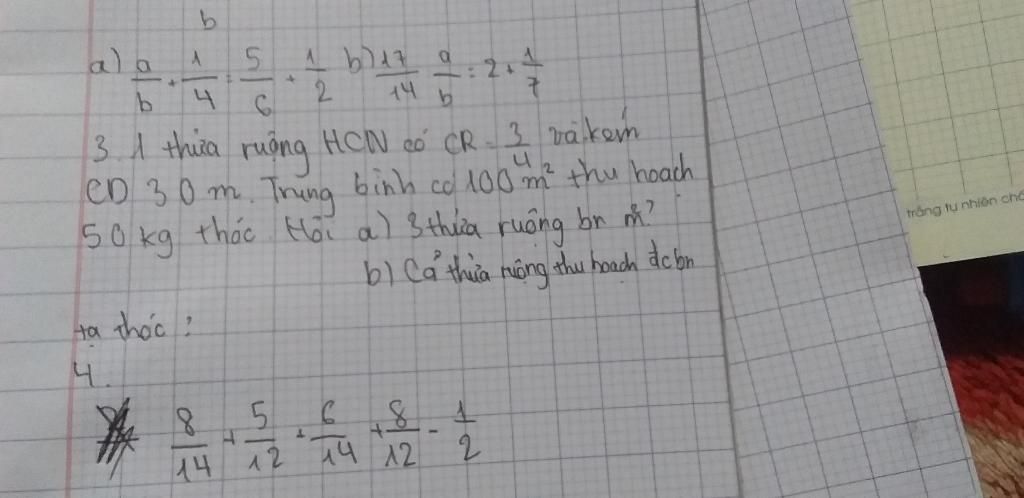 b
a) a/b + 1/4 = 5/6 + 1/2 b) 17/14 a/b = 2 + 1/7
3. 1 thửa ruộng HCN có CR = 3/4 và kem
CD 30 m. Trung bình cd 100 m² thu hoach
50 kg thóc. Hỏi a) S thửa ruộng bn m²?
b) Cả thửa ruộng thu hoach đcbn
tạ thóc?
4.
8/14 + 5/12 + 6/14 + 8/12 - 1/2
trống tự nhiên